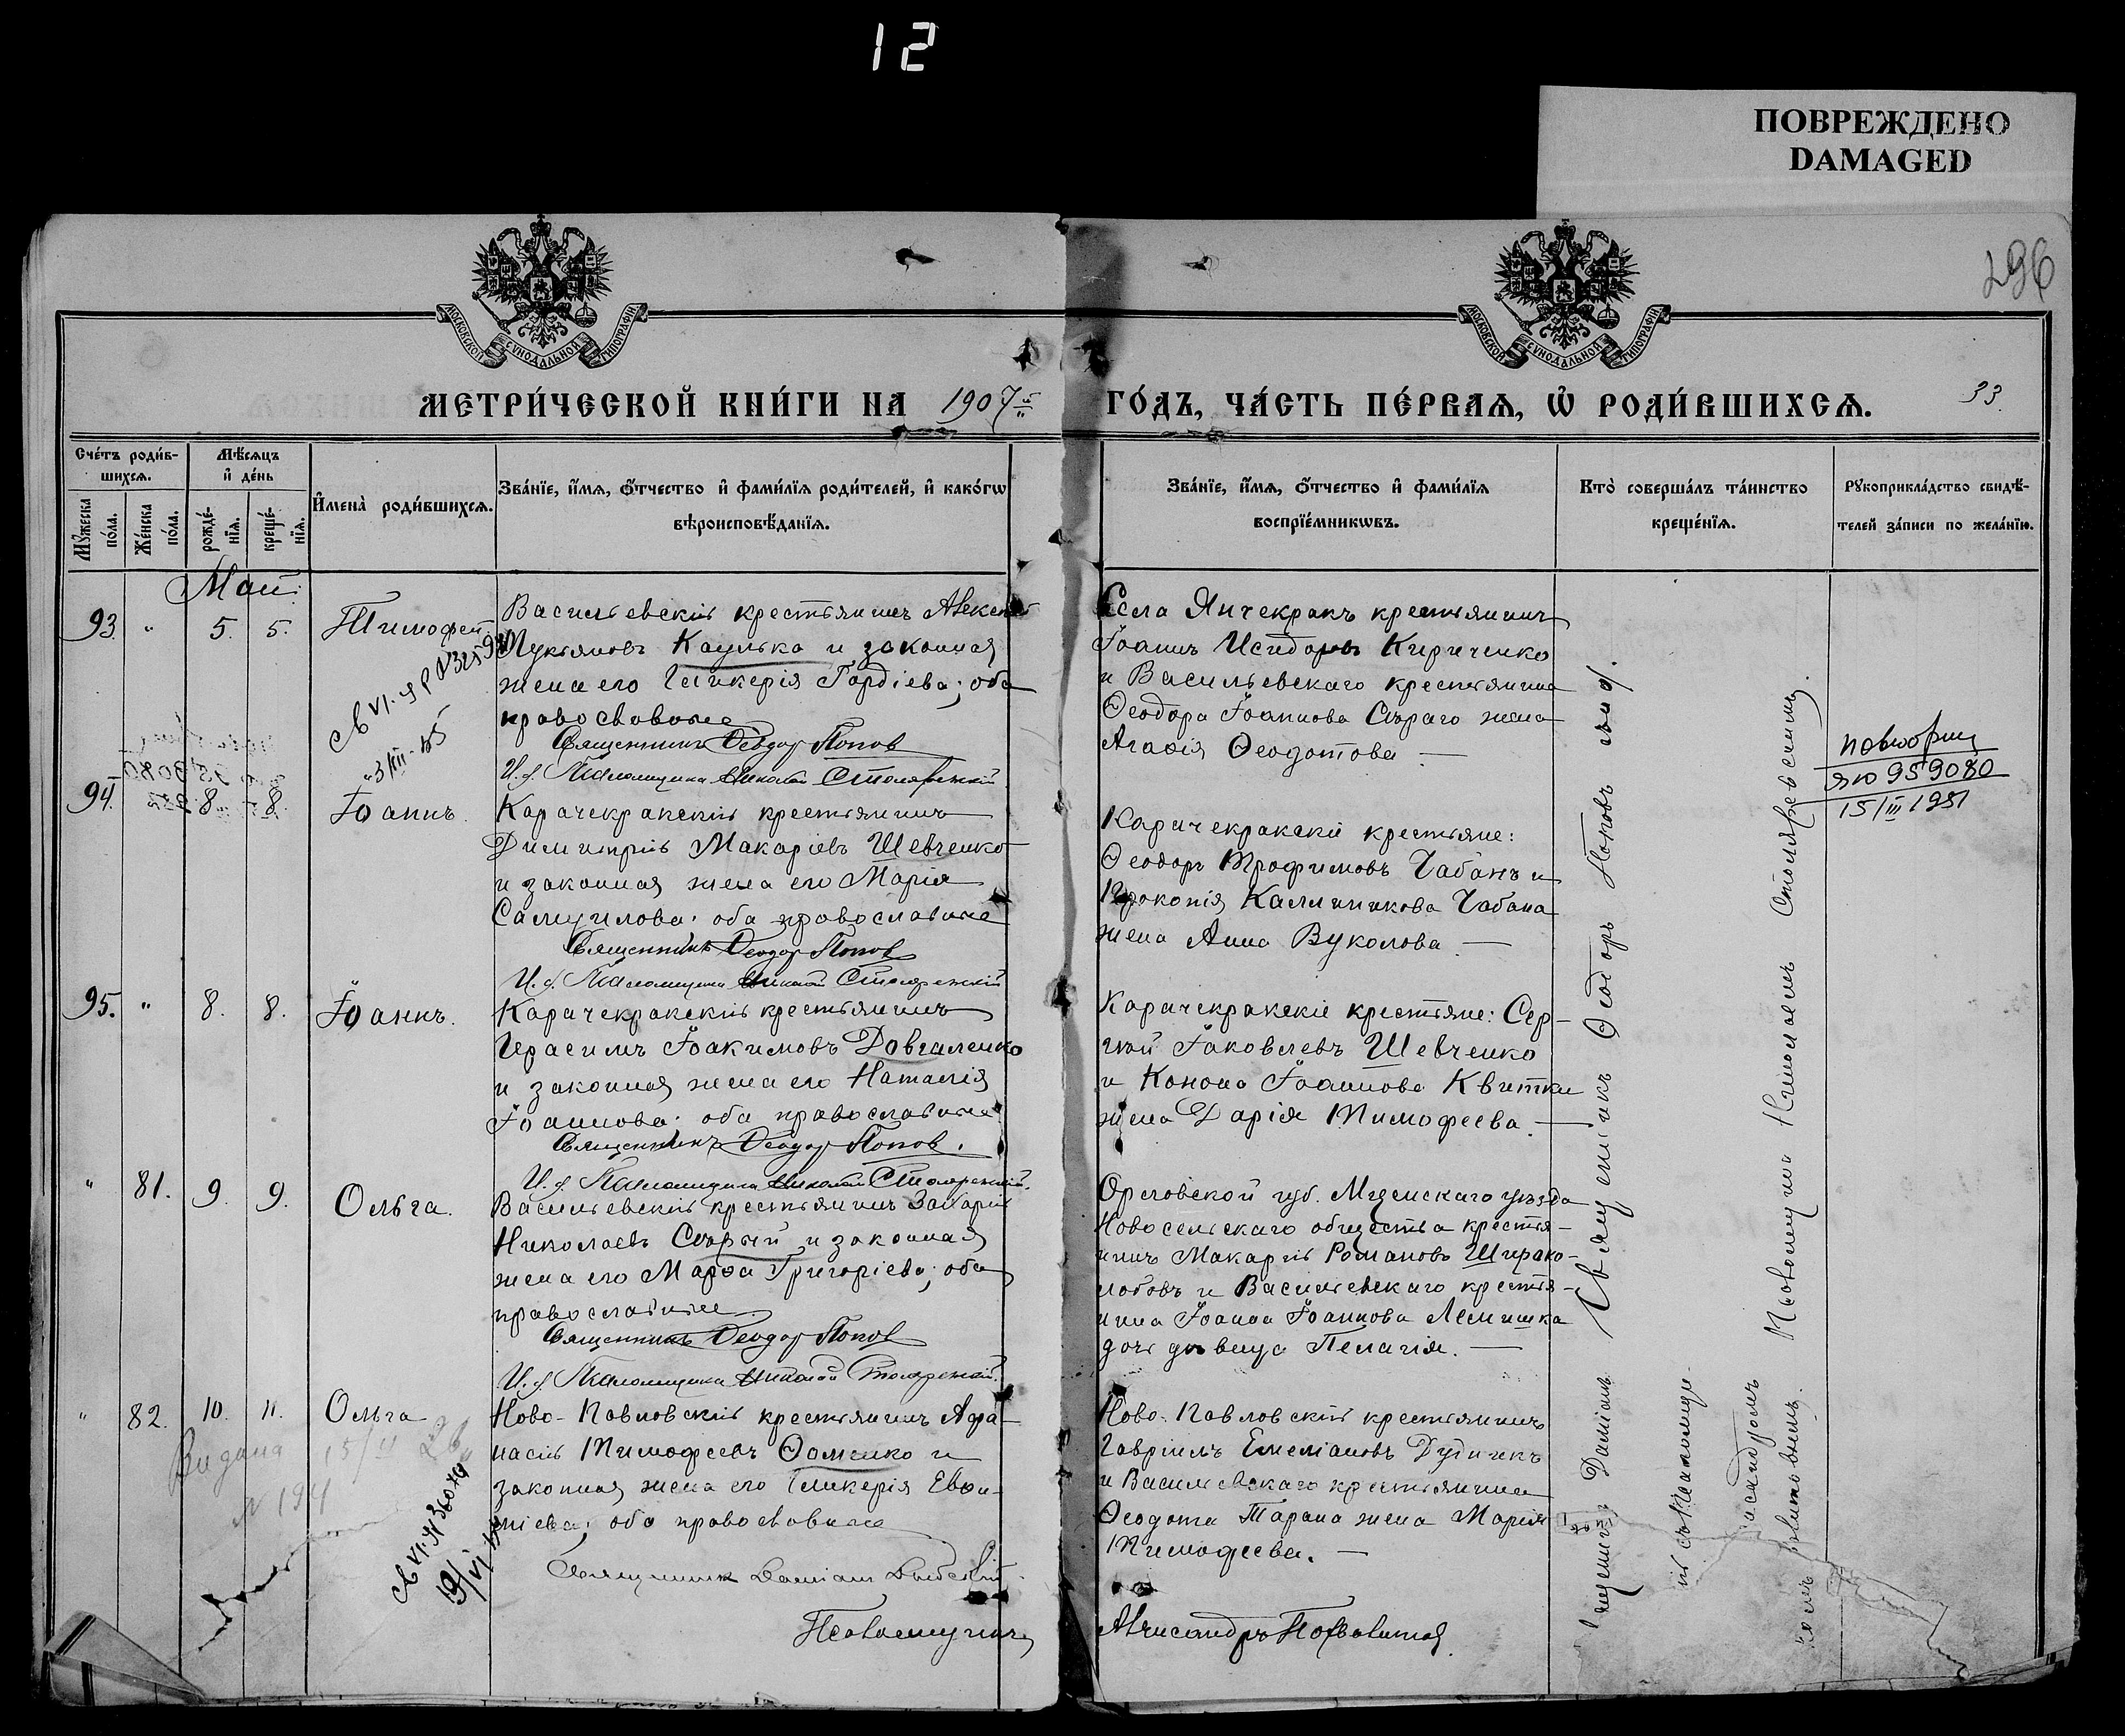 12
ПОВРЕЖДЕНО
DAMAGED
296
МОСКОВСКОЙ СѴНОДАЛЬНОЙ ТИПОГРАФІИ
МОСКОВСКОЙ СѴНОДАЛЬНОЙ ТИПОГРАФІИ
МЕТРИ́ЧЕСКОЙ КНИ́ГИ НА 1907й ГО́ДЪ, ЧА́СТЬ ПЕ́РВАѦ, Ѡ РОДИ́ВШИХСѦ.
33.
Сче́тъ роди́в-
шихсѧ.
Мꙋ́жеска
по́ла.
Же́нска
по́ла.
Мѣ́сѧцъ
и де́нь
рожде́-
нїѧ.
креще́-
нїѧ.
Имена̀ роди́вшихсѧ.
Зва́нїе, и́мѧ, ѻ́тчество и фами́лїѧ роди́телей, и како́гѡ
вѣроисповѣ́данїѧ.
Зва́нїе, и́мѧ, ѻ́тчество и фами́лїѧ
воспрїе́мникѡвъ.
Кто̀ соверша́лъ та́инство
креще́нїѧ.
Рꙋкоприкла́дство свидѣ́-
телей за́писи по жела́нїю.
Май.
93. " 5. 5. Тимофей
Васильевскій крестьянинъ Алексѣй
Лукьяновъ Каулько и законная
жена его Гликерія Гордіева; оба
православные
Священникъ Ѳеодор Попов
И. д. Псаломщика Николай Столяревскій
Села Янчекракъ крестьянинъ
Іоаннъ Исидоровъ Кириченко
и Васильевскаго крестьянина
Ѳеодора Іоаннова Сѣраго жена
Агаѳія Ѳеодотова —
94. " 8. 8. Іоаннъ.
Карачекракскій крестьянинъ
Димитрій Макаріевъ Шевченко
и законная жена его Марія
Самуилова; оба православные
Священникъ Ѳеодор Попов
И. д. Псаломщика Николай Столяревскій
Карачекракскіе крестьяне:
Ѳеодоръ Трофимовъ Чабанъ и
Прокопія Каллиникова Чабана
жена Анна Вуколова —
повторно
ЯЮ 959080
15/III 1951
95. " 8. 8. Іоаннъ.
Карачекракскій крестьянинъ
Герасимъ Іоакимовъ Довгаленко
и законная жена его Наталія
Іоаннова; оба православные
Священникъ Ѳеодор Попов.
И. д. Псаломщика Николай Столяревскій.
Карачекракскіе крестьяне: Сер-
гій Іаковлевъ Шевченко
и Конона Іоаннова Квитки
жена Дарія Тимофеева. —
" 81. 9. 9. Ольга.
Васильевскій крестьянинъ Захарій
Николаевъ Сѣрый и законная
жена его Марѳа Григоріева; оба
православные
Священникъ Ѳеодор Попов
И. д. Псаломщика Николай Столяревскій.
Орловской губ. Мценскаго уѣзда
Новосельскаго общества крестья-
нинъ Макарій Романовъ Широко-
лобовъ и Васильевскаго крестья-
нина Іоанна Іоаннова Лемишка
дочь дѣвица Пелагія. —
" 82. 10. 11. Ольга
Ново-Павловскій крестьянинъ Аѳа-
насій Тимофеевъ Ѳоменко и
законная жена его Гликерія Евѳи-
міева; оба православные
Священникъ Даміанъ
Псаломщикъ Александръ Похвалитый.
Ново-Павловскій крестьянинъ
Гавріилъ Емеліановъ Дудникъ
и Васильевскаго крестьянина
Ѳеодота Тарана жена Марія
Тимофеева. —
Видана 15/II
N 194
19/VI
Священникъ Ѳеодоръ Поповъ
Псаломщикъ Николаемъ Столяревскимъ.
Даміанъ